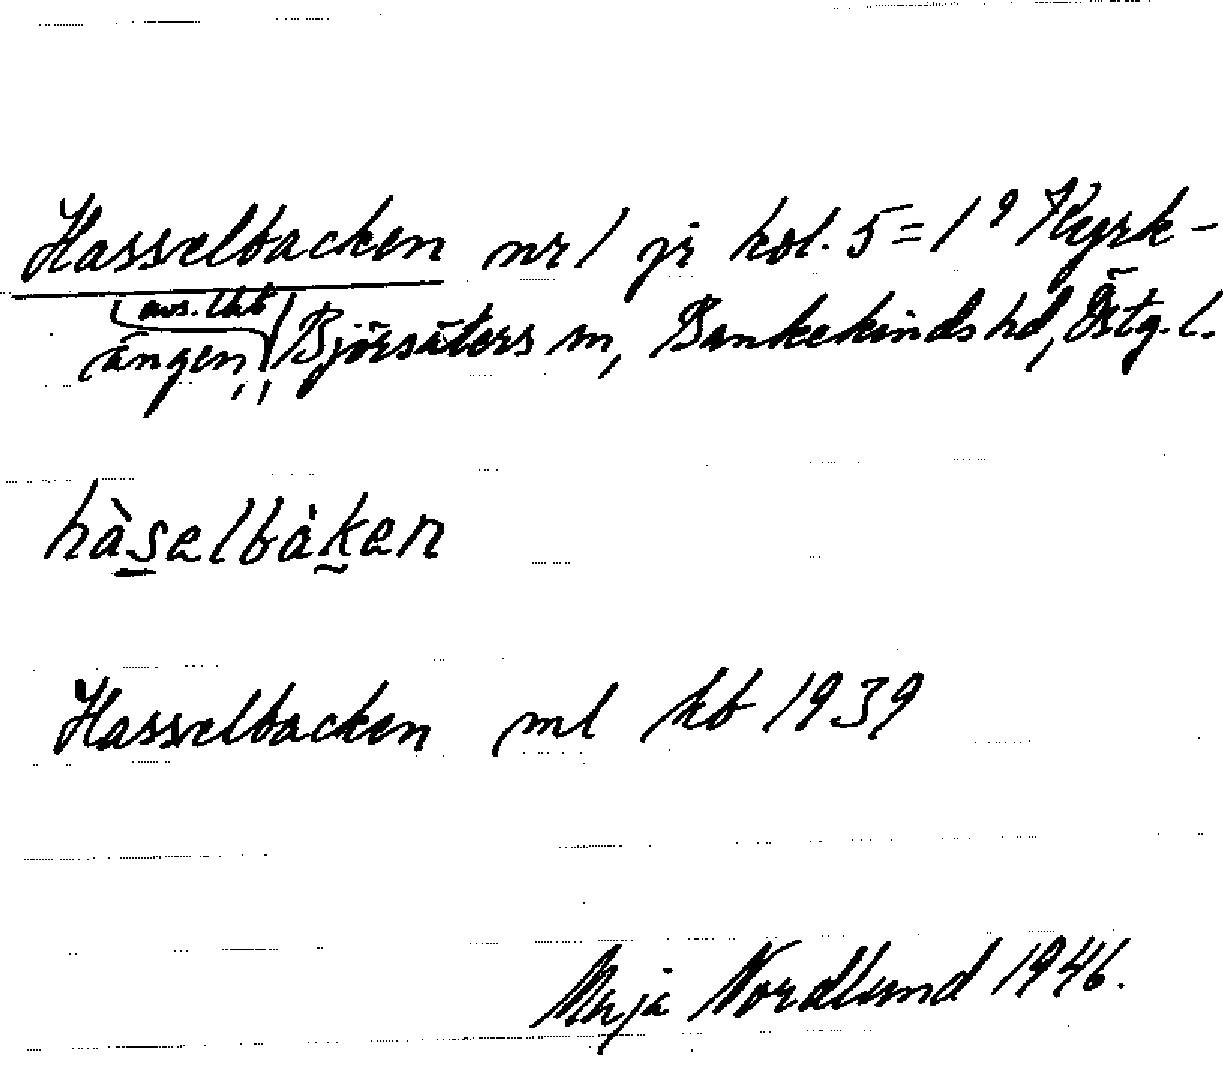 Hasselbacken nr 1 på kol. 5 = 1⁹ Kyrk-
avs. lht
ängen, Björsäters sn, Bankekinds hd, Östg. l.
hàselbàken
Hasselbacken ml kb 1939
Maja Nordlund 1946.